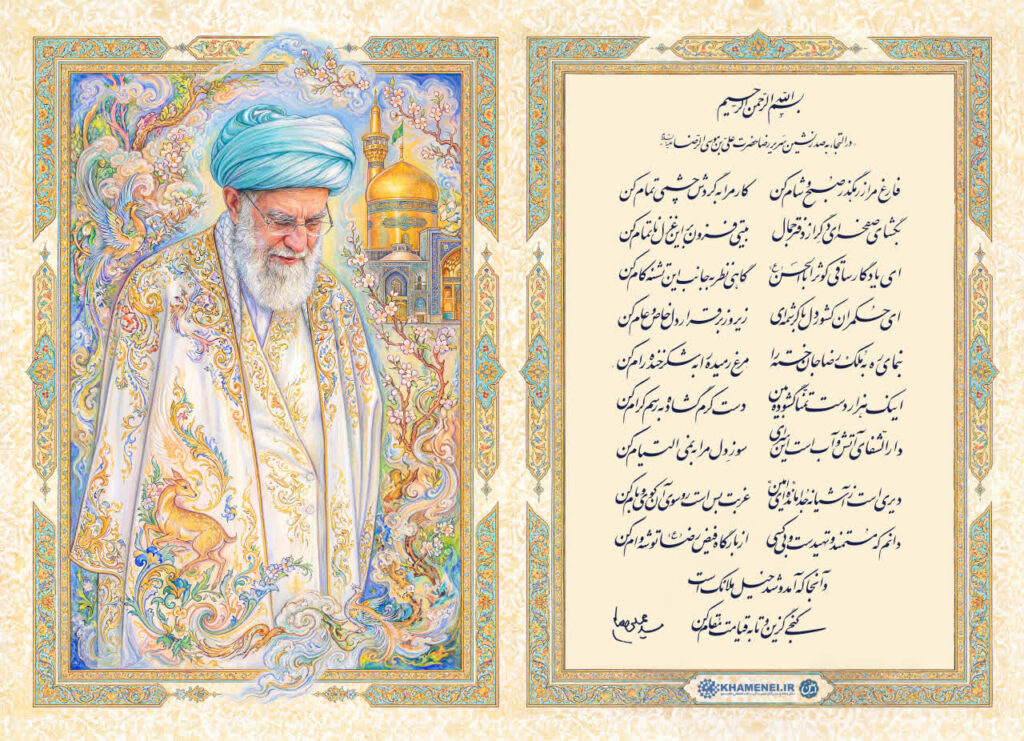 بسم الله الرحمن الرحیم
در التجا به صدرنشین سریر رضا حضرت علی بن موسی الرضا
فارغ مرا ز رهگذر صبح و شام کن کار مرا به گردش چشمی تمام کن
بگشای صفحه‌ای دگر از دفتر جمال بیتی فزون بر این غزل ناتمام کن
ای یادگار ساقی کوثر ابالحسن گاهی نظر به جانب این تشنه کام کن
ای حکمران کشور دل با کرشمه‌ای زیر و زبر قرار دل خاص و عام کن
بنمای ره به ملک رضا جان خسته را مرغ رمیده را به شکرخنده رام کن
اینک هزار دست تمنا گشوده بین دست کرم گشاده به رسم کرام کن
دارالشفای آتش و آب است این سرای سوز دل مرا به نمی التیام کن
دیری است ز آشیانه جدا مانده‌ای امین غربت بس است رو سوی آن کوی و بام کن
دانم که مستمند و تهیدست و بی‌کسی از بارگاه فیض رضا توشه وام کن
و آنجا که آمد و شد خیل ملائک است
کنجی گزین و تا به قیامت مقام کن
KHAMENEI.IR